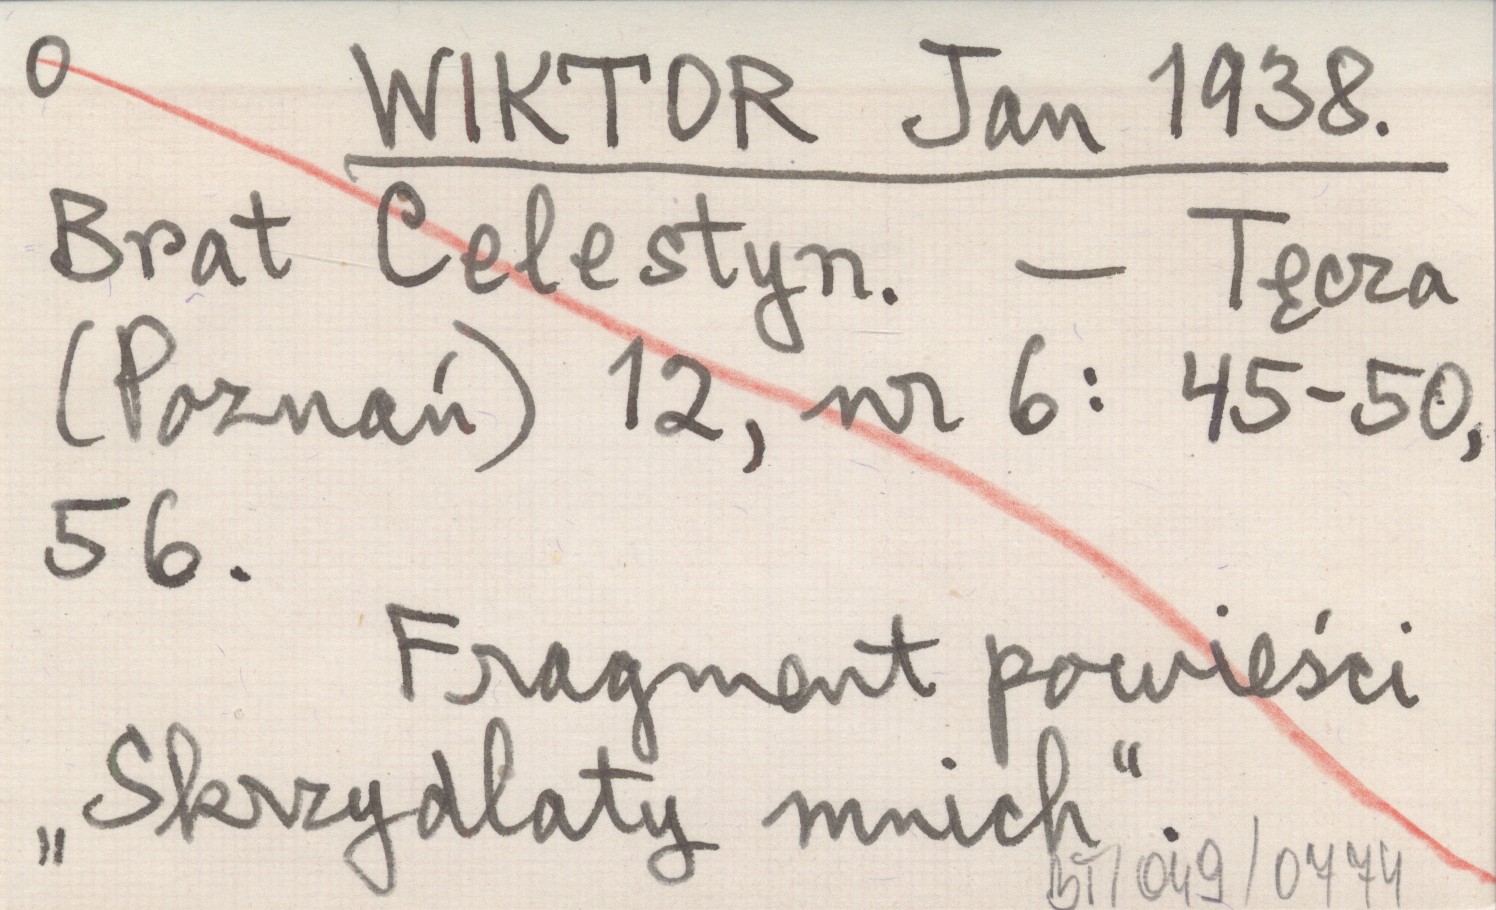 O WIKTOR Jan 1938.
Brat Celestyn. — Tęcza
(Poznań) 12, nr 6: 45-50,
56.
Fragment powieści
„Skrzydlaty mnich“.
BT/049/0774